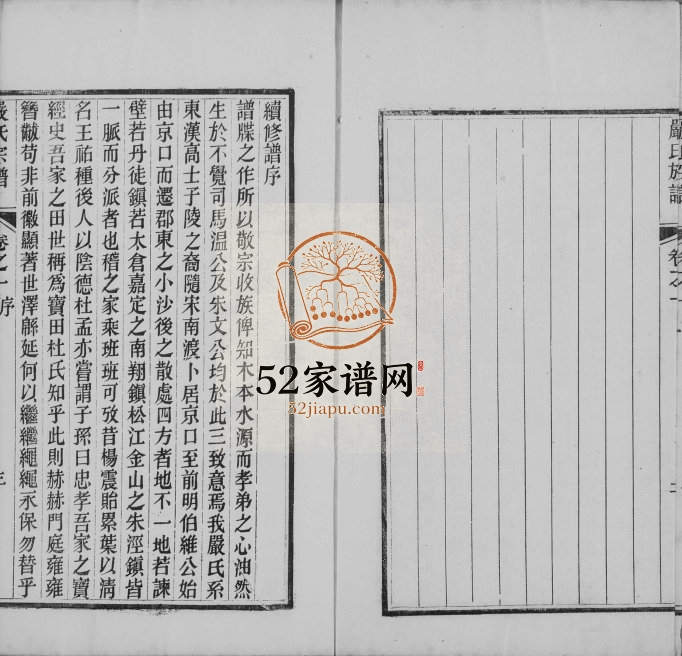 嚴氏族譜
卷之一
續修譜序
譜牒之作所以敬宗收族俾知木本水源而孝弟之心油然
生於不覺司馬温公及朱文公均於此三致意焉我嚴氏系
東漢高士子陵之裔隨宋南渡卜居京口至前明伯維公始
由京口而遷郡東之小沙後之散處四方者地不一地若諫
壁若丹徒鎭若太倉嘉定之南翔鎭松江金山之朱涇鎭皆
一脈而分派者也稽之家乘班班可攷昔楊震貽累葉以清
名王祐種後人以陰德杜孟亦嘗謂子孫曰忠孝吾家之寶
經史吾家之田世稱爲寶田杜氏知乎此則赫赫門庭雍雍
簪黻苟非前徽顯著世澤緜延何以繼繼繩繩永保勿替乎
嚴氏宗譜
卷之一
序
三
52家谱网
52jiapu.com